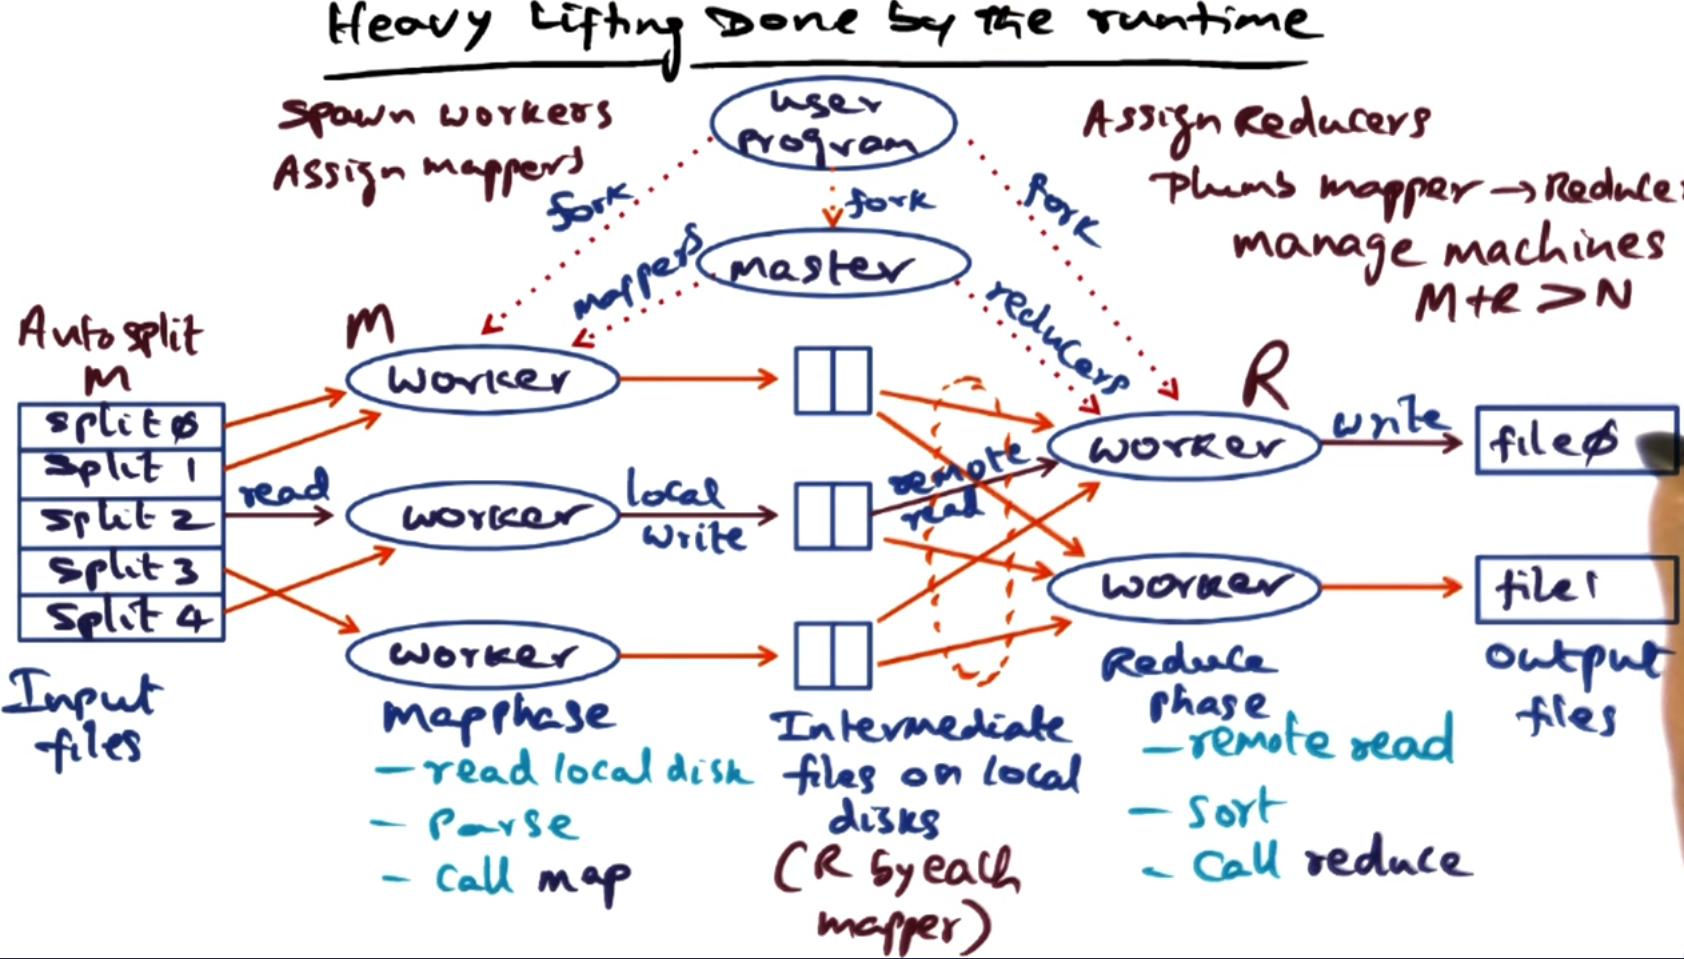 Heavy Lifting Done by the runtime
Spawn workers
Assign mappers
user
program
Assign Reducers
Plumb mapper → Reduce
manage machines
M+R > N
fork
fork
fork
mappers
master
reducers
Auto split
M
M
R
split 0
split 1
split 2
split 3
split 4
read
worker
worker
worker
local
write
remote
read
worker
worker
write
file 0
file 1
Input
files
map phase
- read local disk
- Parse
- Call map
Intermediate
files on local
disks
(R by each
mapper)
Reduce
phase
- remote read
- Sort
- Call reduce
output
files